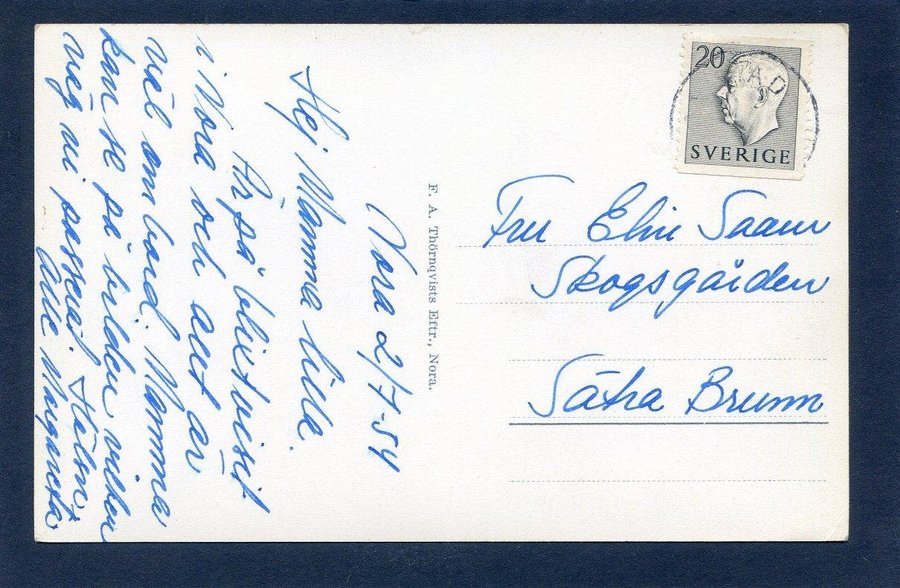 Nora 2/7-54
Hej Mamma lilla.
Är på blixtvisit
i Nora och allt är
väl om bord. Mamma
kan se på bilden vilken
väg vi passerat. Hälsn.
Margareta
F. A. Thörnqvists Eftr., Nora.
20
SVERIGE
Fru Elin
Skogsgården
Sätra Brunn